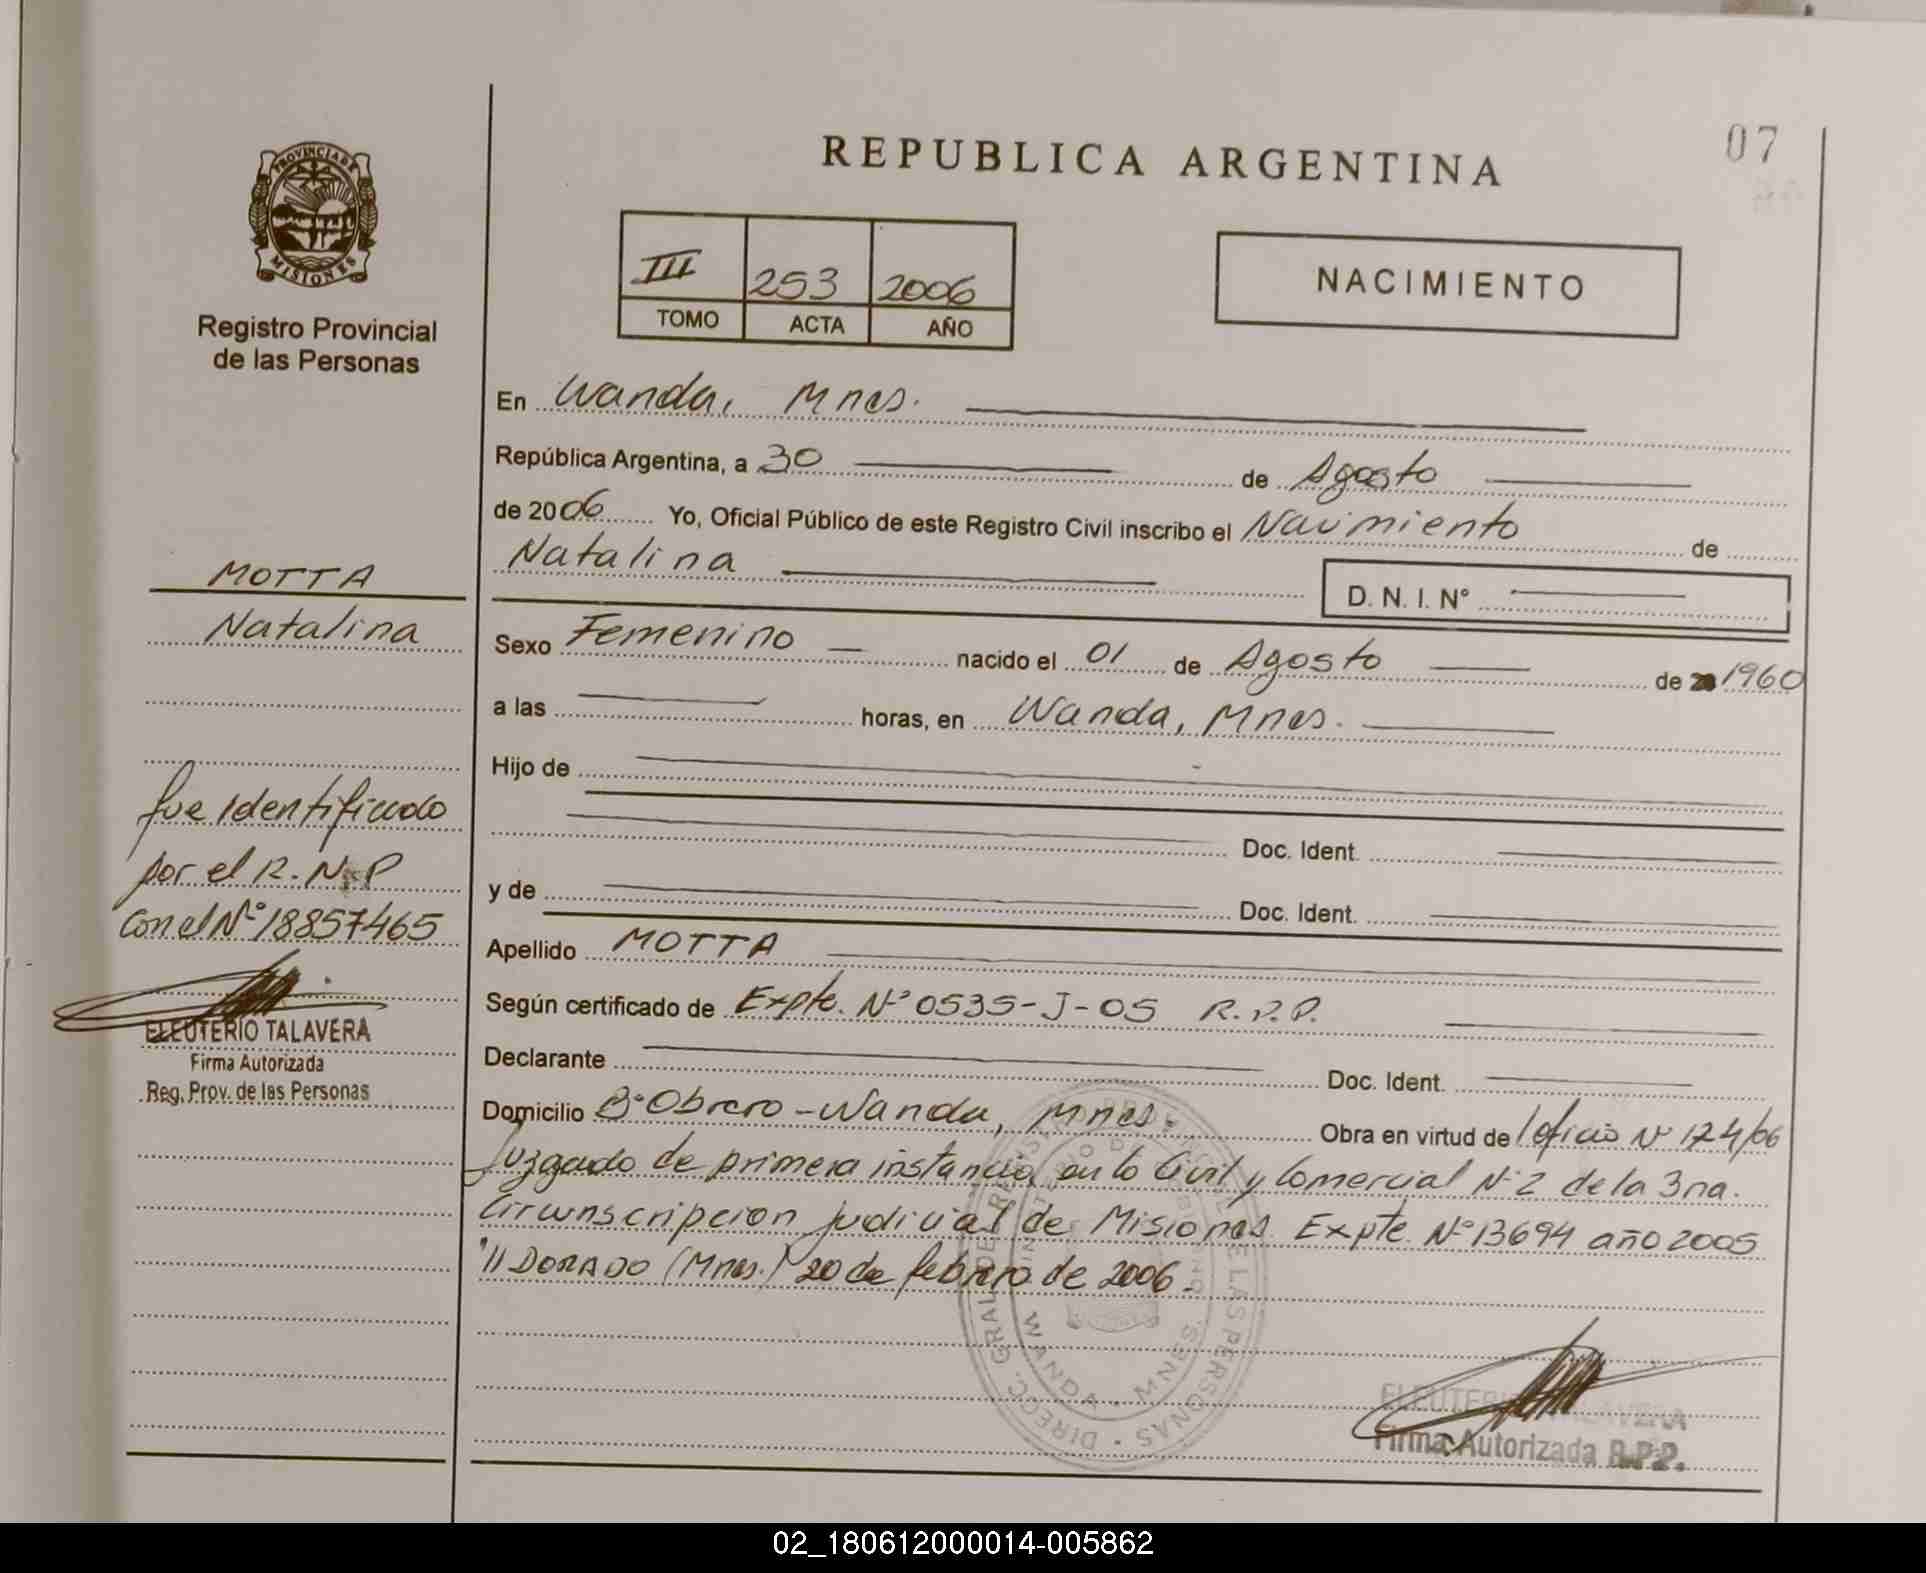 07
REPUBLICA ARGENTINA
PROVINCIA DE
MISIONES
Registro Provincial
de las Personas
III 253 2006
TOMO ACTA AÑO
NACIMIENTO
En Wanda, Mnes.
República Argentina, a 30 de Agosto
de 2006 Yo, Oficial Público de este Registro Civil inscribo el Nacimiento de
Natalina
D. N. I. N°
Sexo Femenino nacido el 01 de Agosto de 1960
a las horas, en Wanda, Mnes.
Hijo de
Doc. Ident.
y de Doc. Ident.
Apellido MOTTA
Según certificado de Expte. N° 0535-J-05 R.P.P.
Declarante Doc. Ident.
Domicilio B° Obrero - Wanda, Mnes. Obra en virtud de oficio N° 174/06
Juzgado de primera instancia en lo Civil y Comercial N° 2 de la 3ra.
Circunscripcion judicial de Misiones. Expte. N° 13694 año 2005
DORADO (Mnes.) 20 de febrero de 2006.
MOTTA
Natalina
fue identificado
por el R.N.P
con el N° 18857465
ELEUTERIO TALAVERA
Firma Autorizada
Reg. Prov. de las Personas
DIRECC. GRAL. DE REGISTRO DE LAS PERSONAS
WANDA - MNES.
ELEUTERIO TALAVERA
Firma Autorizada R.P.P.
02_180612000014-005862